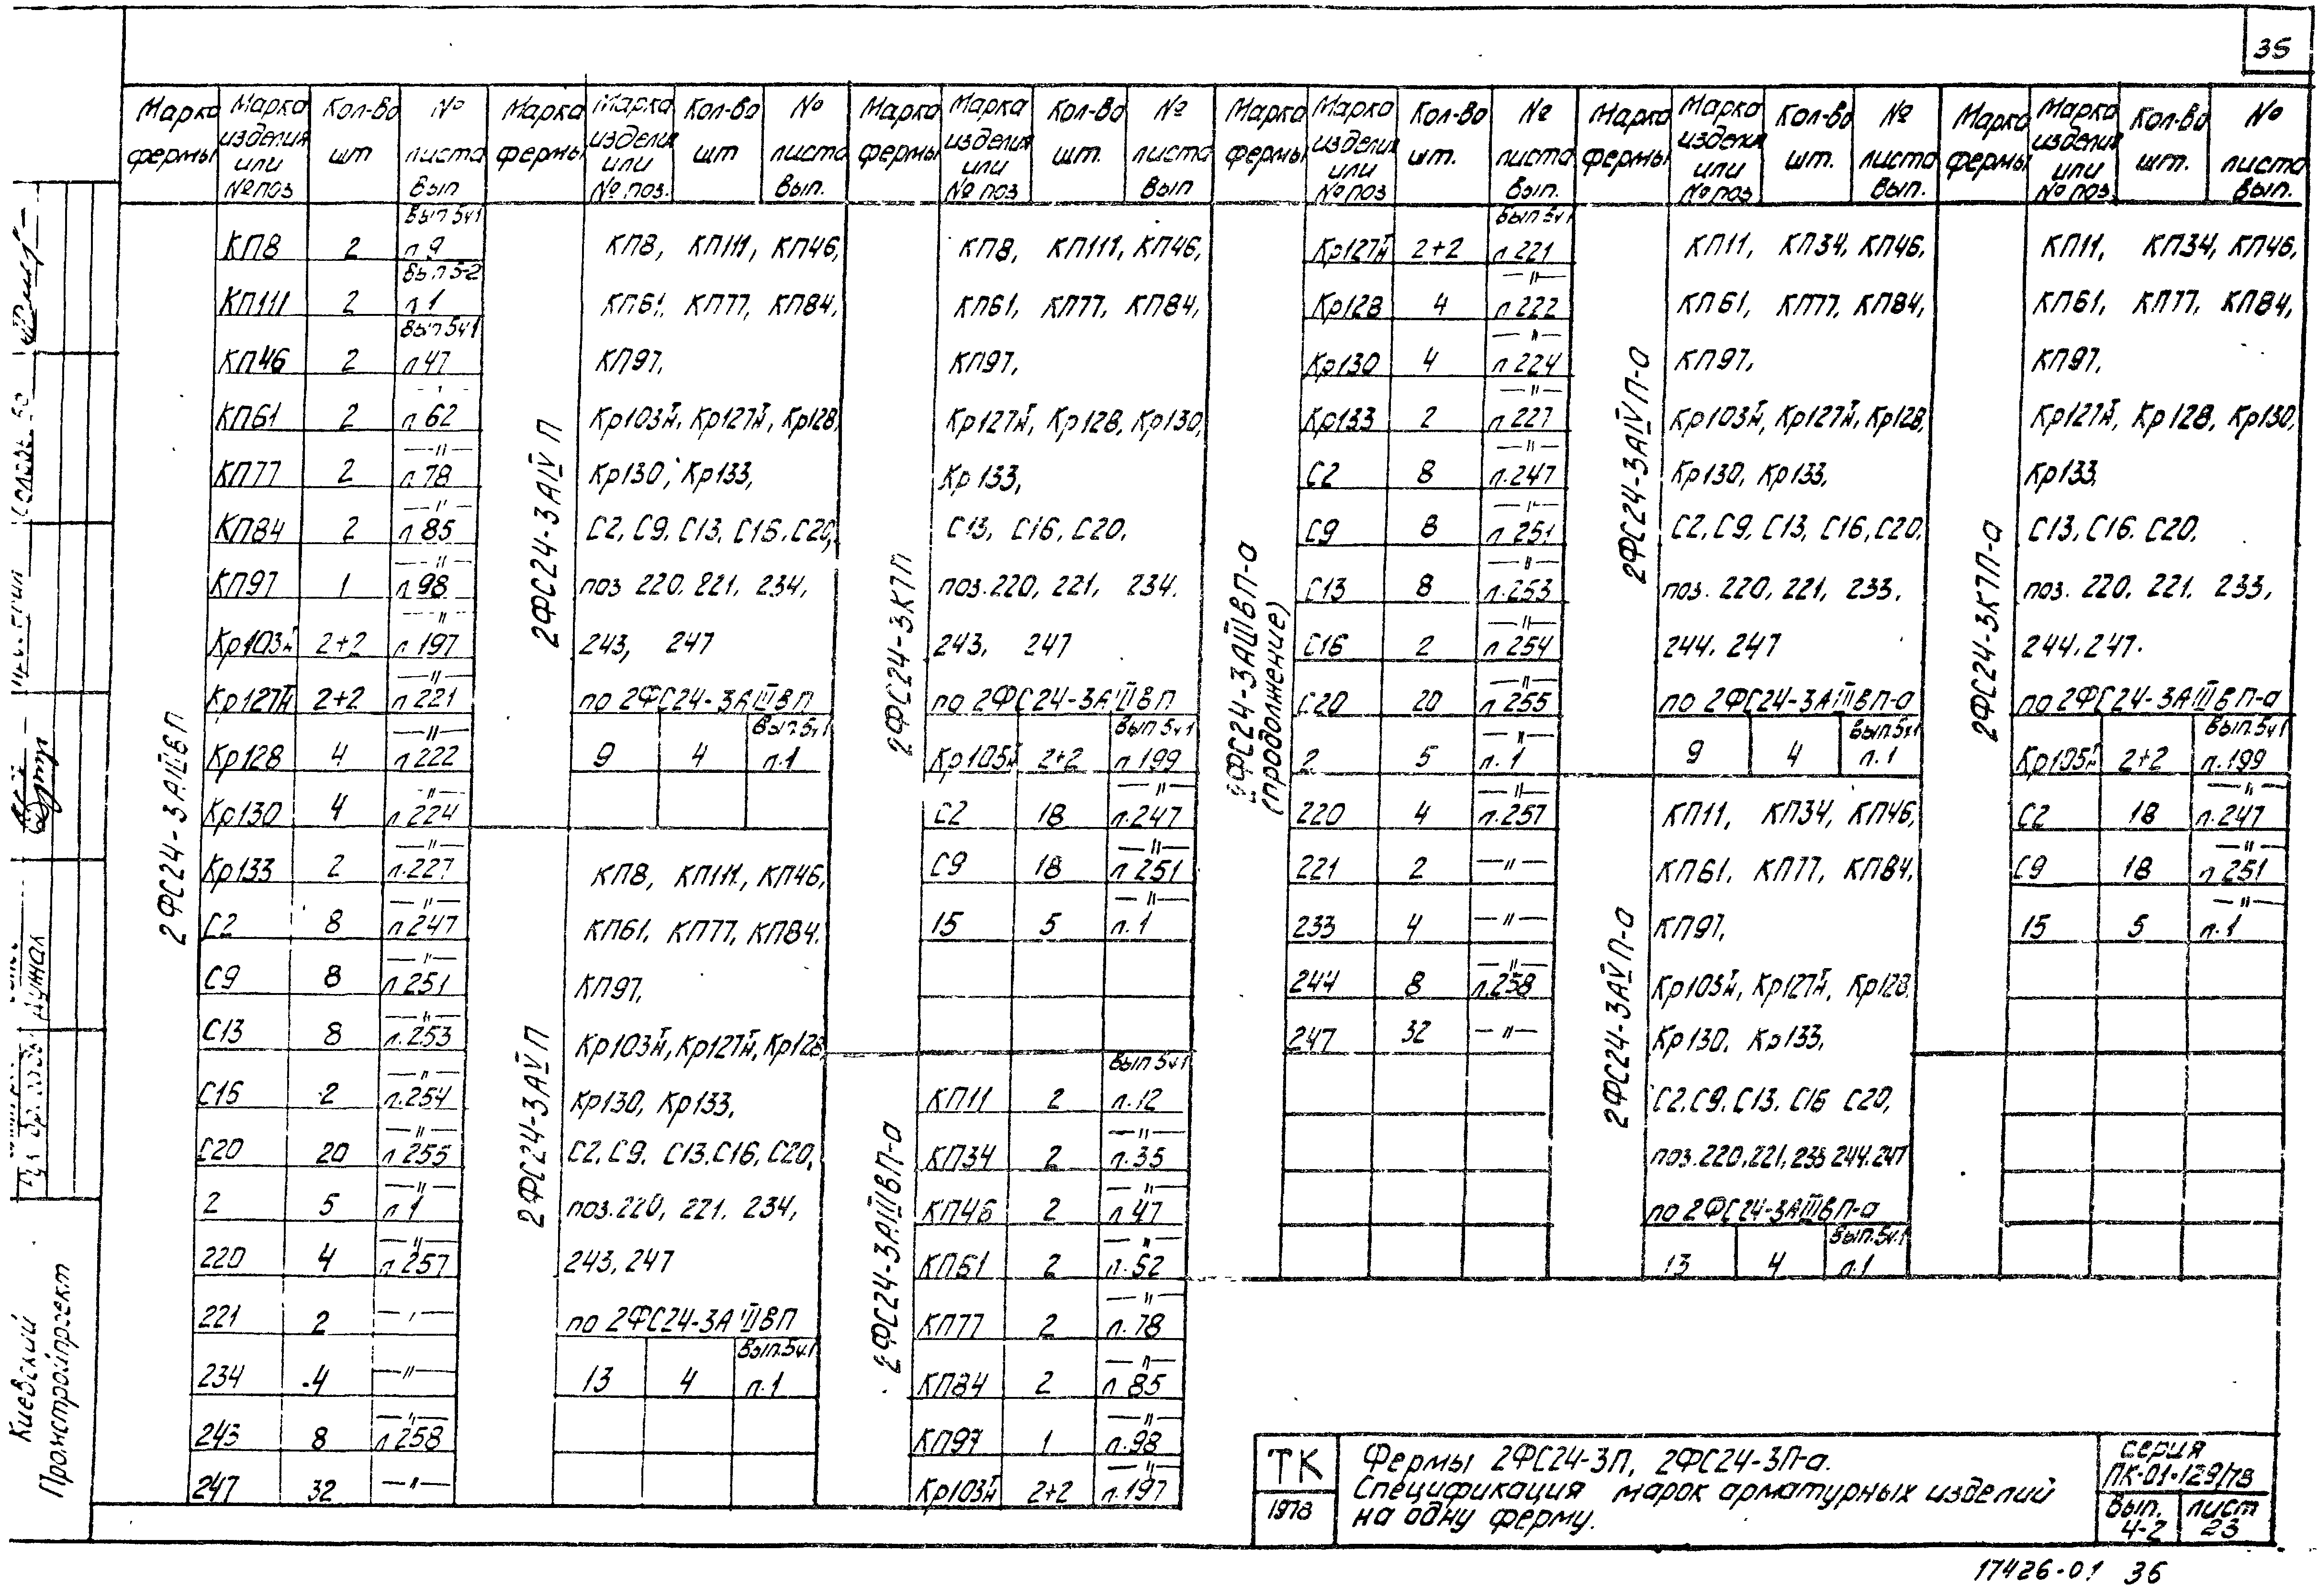 35
Марка фермы | Марка изделия или № поз | Кол-во шт | № листа Вып
2ФС24-3АIIIвП
КП8 2 Вып 5ч1 л 9
КП111 2 Вып 5-2 л 1
КП46 2 Вып 5ч1 л 47
КП61 2 л 62
КП77 2 —"— л.78
КП84 2 —"— л 85
КП97 1 —"— л 98
Кр103 т/н 2+2 —"— л 197
Кр127 т/н 2+2 —"— л 221
Кр128 4 —"— л 222
Кр130 4 —"— л 224
Кр133 2 —"— л.227
С2 8 —"— л 247
С9 8 —"— л 251
С13 8 —"— л.253
С16 2 —"— л.254
С20 20 —"— л 255
2 5 —"— л 1
220 4 —"— л 257
221 2 —"—
234 4 —"—
243 8 —"— л 258
247 32 —"—
Марка фермы | Марка изделия или № поз. | Кол-во шт | № листа Вып.
2ФС24-3АIV П
КП8, КП111, КП46,
КП61, КП77, КП84,
КП97,
Кр103 т/н, Кр127 т/н, Кр128,
Кр130, Кр133,
С2, С9, С13, С16, С20,
поз 220, 221, 234,
243, 247
по 2ФС24-3АIIIвП
9 4 Вып.5ч1 л.1
2ФС24-3АV П
КП8, КП111, КП46,
КП61, КП77, КП84.
КП97,
Кр103 т/н, Кр127 т/н, Кр128,
Кр130, Кр133,
С2, С9, С13, С16, С20,
поз.220, 221, 234,
243, 247
по 2ФС24-3АIIIвП
13 4 Вып.5ч.1 л.1
Марка фермы | Марка изделия или № поз | Кол-во шт. | № листа Вып
2ФС24-3К7П
КП8, КП111, КП46,
КП61, КП77, КП84,
КП97,
Кр127 т/н, Кр128, Кр130,
Кр133,
С13, С16, С20,
поз.220, 221, 234.
243, 247
по 2ФС24-3АIIIвП
Кр105 т/н 2+2 Вып 5ч1 л 199
С2 18 —"— л.247
С9 18 —"— л 251
15 5 —"— л.1
2ФС24-3АIIIвП-а
КП11 2 Вып 5ч1 л.12
КП34 2 —"— л.35
КП46 2 —"— л 47
КП61 2 —"— л.62
КП77 2 —"— л.78
КП84 2 —"— л 85
КП97 1 —"— л.98
Кр103 т/н 2+2 —"— л.197
Марка фермы | Марка изделия или № поз | Кол-во шт. | № листа Вып.
2ФС24-3АIIIвП-а (продолжение)
Кр127 т/н 2+2 Вып 5ч1 л 221
Кр128 4 —"— л 222
Кр130 4 —"— л 224
Кр133 2 —"— л 227
С2 8 —"— л.247
С9 8 —"— л 251
С13 8 —"— л.253
С16 2 —"— л 254
С20 20 —"— л 255
2 5 —"— л. 1
220 4 —"— л.257
221 2 —"—
233 4 —"—
244 8 —"— л.258
247 32 —"—
Марка фермы | Марка изделия или № поз | Кол-во шт. | № листа Вып.
2ФС24-3АIV П-а
КП11, КП34, КП46,
КП61, КП77, КП84,
КП97,
Кр103 т/н, Кр127 т/н, Кр128,
Кр130, Кр133,
С2, С9, С13, С16, С20,
поз. 220, 221, 233,
244, 247
по 2ФС24-3АIIIвП-а
9 4 Вып.5ч1 л.1
2ФС24-3АV П-а
КП11, КП34, КП46,
КП61, КП77, КП84,
КП97,
Кр103 т/н, Кр127 т/н, Кр128,
Кр130, Кр133,
С2, С9, С13, С16 С20,
поз.220, 221, 233 244, 247
по 2ФС24-3АIIIвП-а
13 4 Вып.5ч.1 л.1
Марка фермы | Марка изделия или № поз. | Кол-во шт. | № листа Вып.
2ФС24-3К7П-а
КП11, КП34, КП46,
КП61, КП77, КП84,
КП97,
Кр127 т/н, Кр128, Кр130,
Кр133,
С13, С16, С20,
поз. 220, 221, 233,
244, 247.
по 2ФС24-3АIIIвП-а
Кр105 т/н 2+2 Вып.5ч1 л.199
С2 18 —"— л.247
С9 18 —"— л 251
15 5 —"— л.1
Киевский
Промстройпроект
ТК
1978
Фермы 2ФС24-3П, 2ФС24-3П-а.
Спецификация марок арматурных изделий
на одну ферму.
серия
ПК-01-129/78
Вып. 4-2
лист 23
17426-01 36